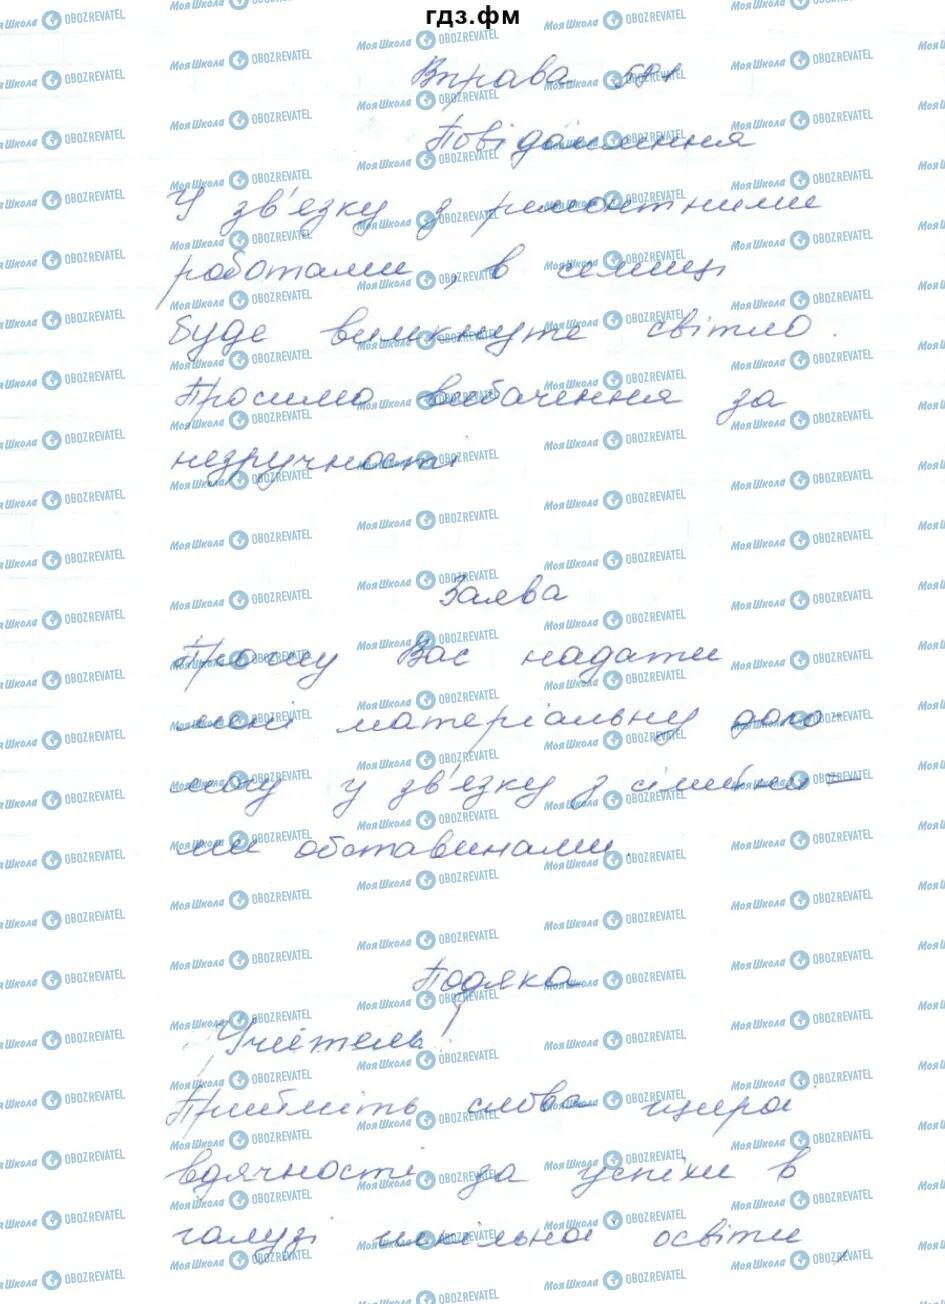 гдз.фм
Вправа
Повідомлення
У зв'язку з ремонтними
роботами, в селищі
буде вимкнуте світло.
Просимо вибачення за
незручності
Заява
Прошу Вас надати
мені матеріальну допо-
могу у зв'язку з сімейни=
ми обставинами.
Подяка
Учитель!
Прийміть слова щирої
вдячності за успіхи в
галузі шкільної освіти,
МояШкола OBOZREVATEL